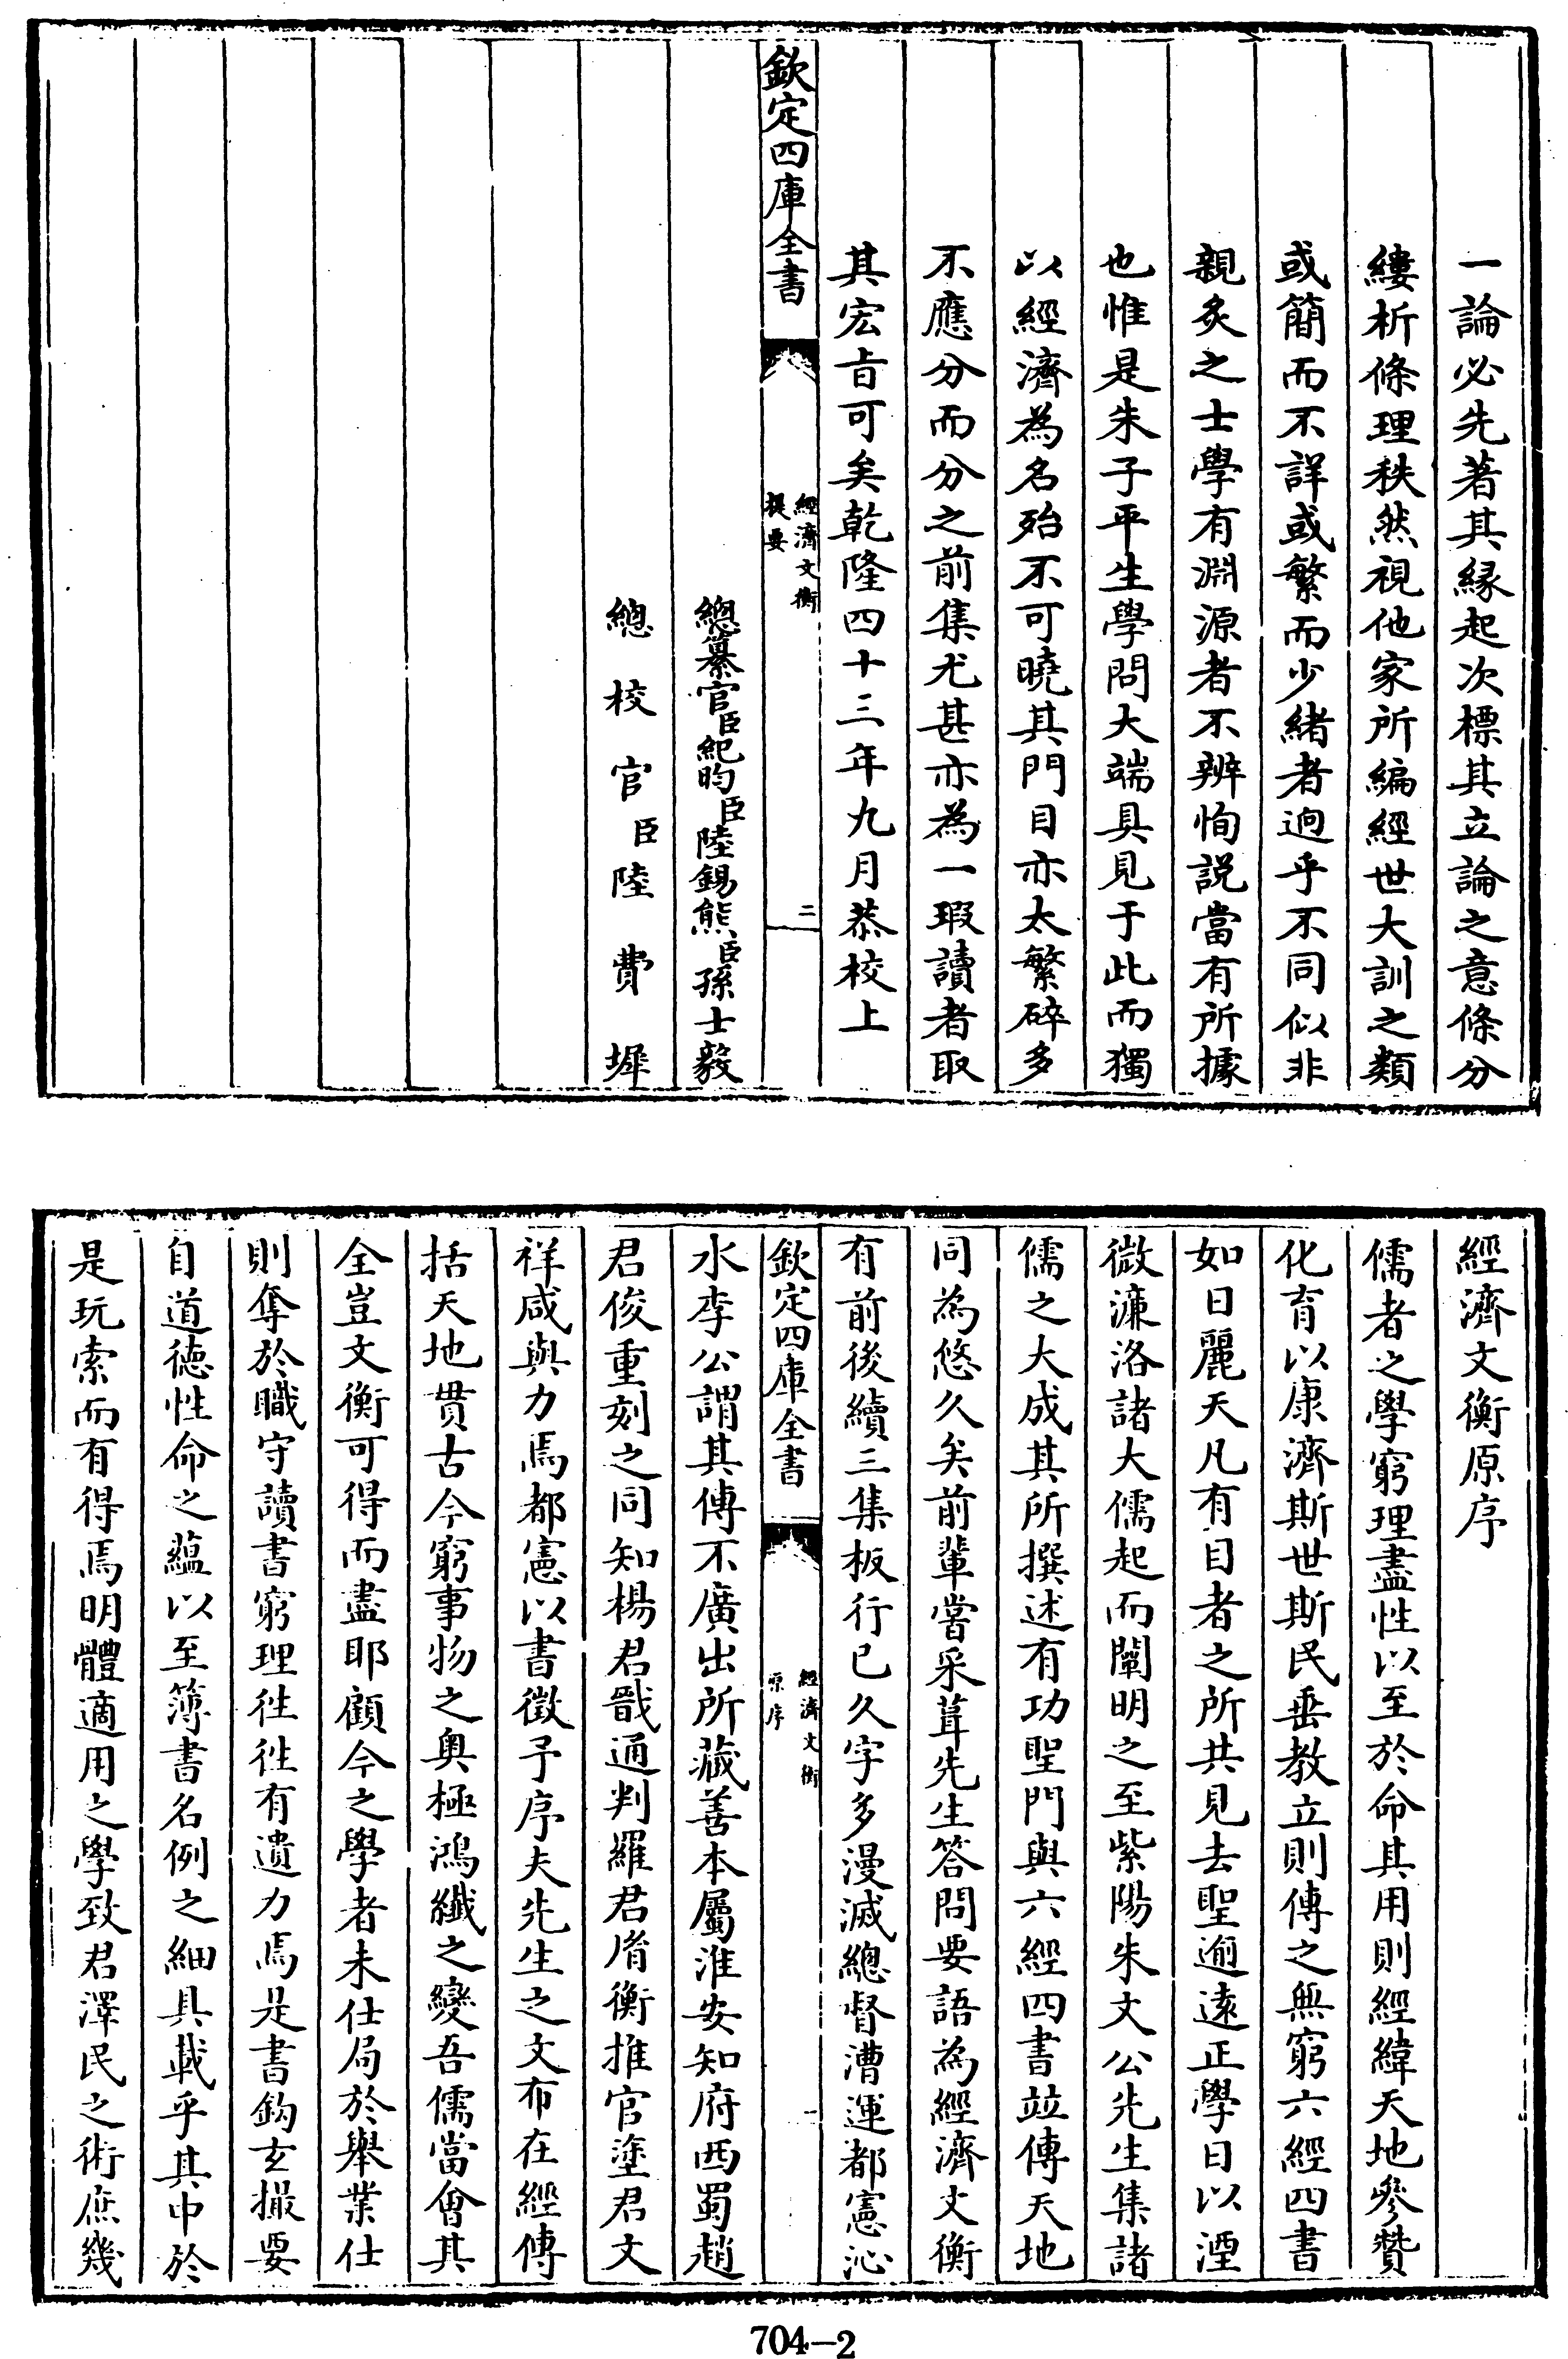 一論必先著其縁起次標其立論之意條分
縷析條理秩然視他家所編經世大訓之類
或簡而不詳或繁而少緒者逈乎不同似非
親炙之士學有淵源者不辨恂説當有所據
也惟是朱子平生學問大端具見于此而獨
以經濟為名殆不可曉其門目亦太繁碎多
不應分而分之前集尤甚亦為一瑕讀者取
其宏㫖可矣乾隆四十三年九月恭校上
欽定四庫全書
經濟文衡
提要
二
總纂官臣紀昀臣陸錫熊臣孫士毅
總校官臣陸費墀
經濟文衡原序
儒者之學窮理盡性以至於命其用則經緯天地參贊
化育以康濟斯世斯民垂教立則傳之無窮六經四書
如日麗天凡有目者之所共見去聖逾遠正學日以湮
微濂洛諸大儒起而闡明之至紫陽朱文公先生集諸
儒之大成其所撰述有功聖門與六經四書竝傳天地
同為悠久矣前輩嘗采葺先生答問要語為經濟文衡
有前後續三集板行已久字多漫滅總督漕運都憲沁
欽定四庫全書
經濟文衡
原序
一
水李公謂其傳不廣出所藏善本屬淮安知府西蜀趙
君俊重刻之同知楊君戩通判羅君脩衡推官塗君文
祥咸與力焉都憲以書徵予序夫先生之文布在經傳
括天地貫古今窮事物之奥極鴻纖之變吾儒當會其
全豈文衡可得而盡耶顧今之學者未仕局於舉業仕
則奪於職守讀書窮理徃徃有遺力焉是書鈎玄撮要
自道徳性命之蘊以至簿書名例之細具載乎其中於
是玩索而有得焉明體適用之學致君澤民之術庶幾
704-2